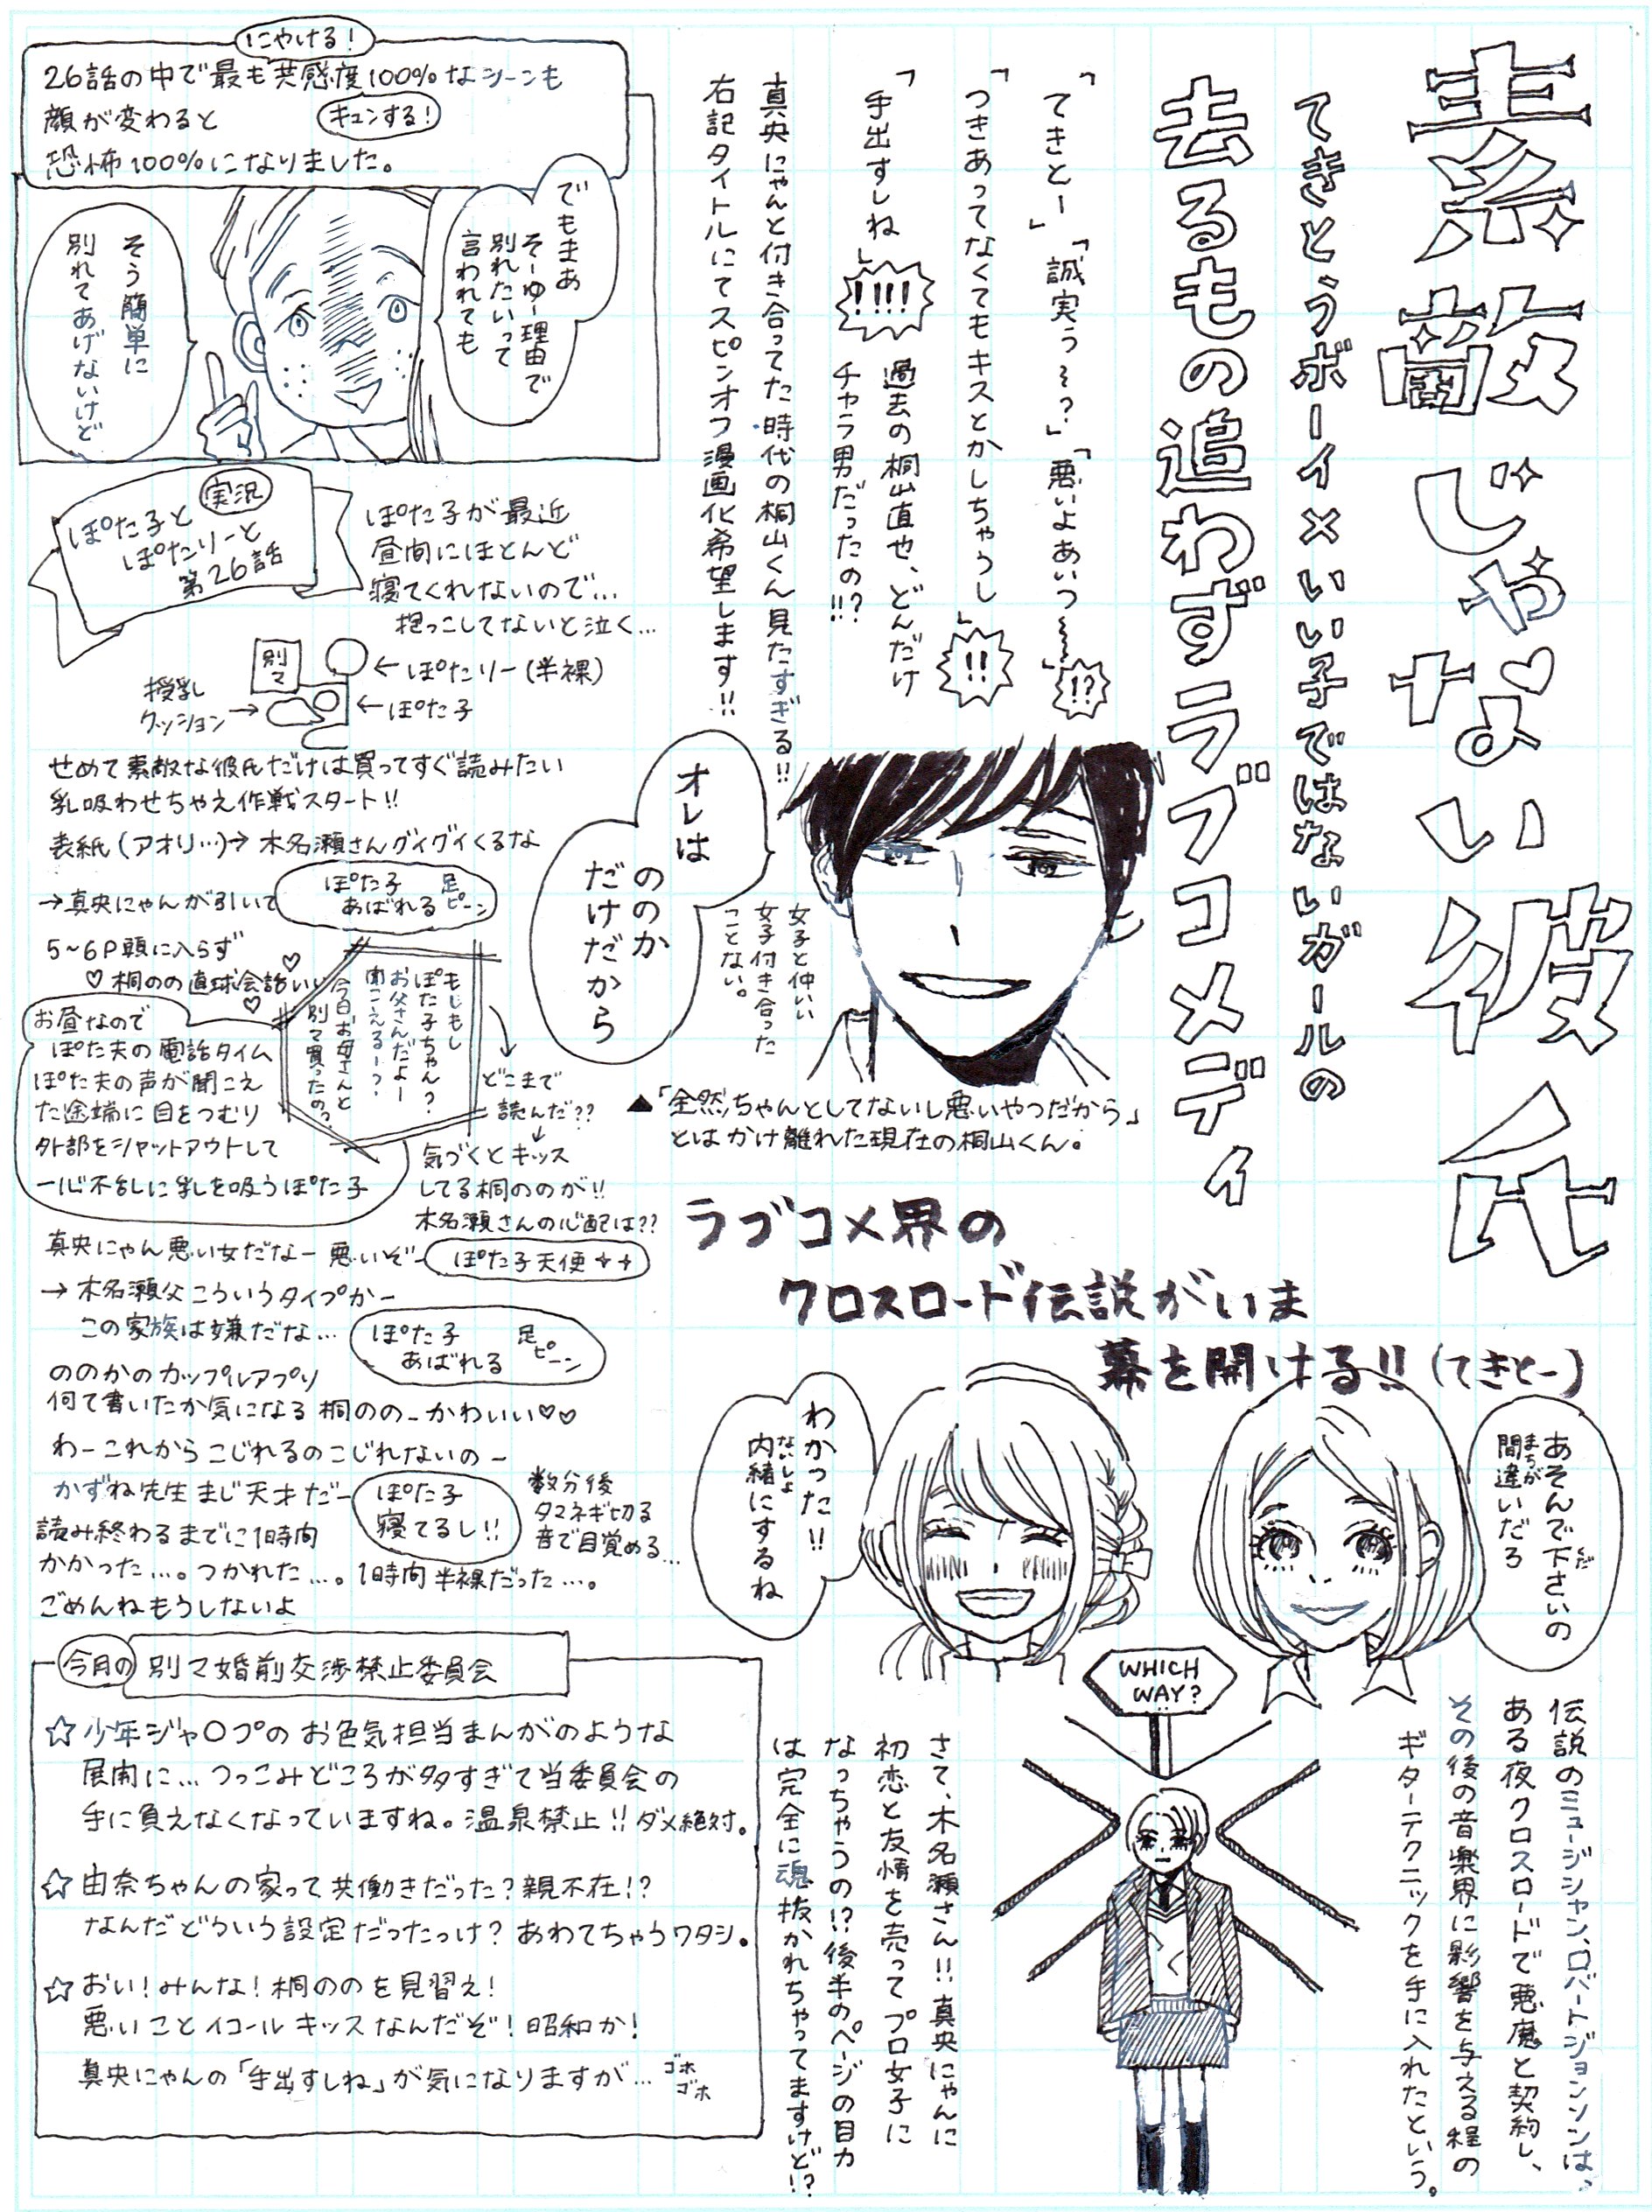 素敵じゃない彼氏
てきとうボーイ×いい子ではないガールの
去るもの追わずラブコメディ
「てきとー」「誠実う〜?」「悪いよあいつ〜〜」!?
「つきあってなくてもキスとかしちゃうし」!!
「手出すしね」!!!!
過去の桐山直也、どんだけ
チャラ男だったの!?!!
真央にゃんと付き合ってた時代の桐山くん見たすぎる!!
右記タイトルにてスピンオフ漫画化希望します!!
にやける!
26話の中で最も共感度100%なシーンも
キュンする!
顔が変わると
恐怖100%になりました。
でもまあ
そーゆー理由で
別れたいって
言われても
そう簡単に
別れてあげないけど
実況
ぽた子と
ぽたりーと
第26話
ぽた子が最近
昼間にほとんど
寝てくれないので…
抱っこしてないと泣く…
別マ
←ぽたりー(半裸)
授乳
クッション→
←ぽた子
せめて素敵な彼氏だけは買ってすぐ読みたい
乳吸わせちゃえ作戦スタート!!
表紙(アオリ…)→木名瀬さんグイグイくるな
→真央にゃんが引いて
ぽた子
あばれる
足
ピーン
5~6P頭に入らず
♡桐のの直球会話いい♡
もしもし
ぽた子ちゃん?
お父さんだよー
聞こえるー?
今日お母さんと
別マ買ったの?
お昼なので
ぽた夫の電話タイム
ぽた夫の声が聞こえ
た途端に目をつむり
外部をシャットアウトして
一心不乱に乳を吸うぽた子
どこまで
読んだ??
気づくとキッス
してる桐ののが!!
木名瀬さんの心配は??
真央にゃん悪い女だなー悪いぞー
ぽた子天使✦✦
→木名瀬父こういうタイプかー
この家族は嫌だな…
ぽた子
あばれる
足
ピーン
ののかのカップルアプリ
何て書いたか気になる桐ののーかわいい♡♡
わーこれからこじれるのこじれないのー
かずね先生まじ天才だー
ぽた子
寝てるし!!
数分後
タマネギ切る
音で目覚める…
読み終わるまでに1時間
かかった…。つかれた…。1時間半裸だった…。
ごめんねもうしないよ
オレは
ののか
だけだから
女子と仲いい
女子付き合った
ことない。
▲「全然ちゃんとしてないし悪いやつだから」
とはかけ離れた現在の桐山くん。
ラブコメ界の
クロスロード伝説がいま
幕を開ける!!(てきとー)
あそんで下さいの
くだ
間違いだろ
まちが
わかった!!
内緒にするね
ないしょ
WHICH
WAY?
伝説のミュージシャン、ロバートジョンソンは、
ある夜クロスロードで悪魔と契約し、
その後の音楽界に影響を与える程の
ギターテクニックを手に入れたという。
さて、木名瀬さん!!真央にゃんに
初恋と友情を売ってプロ女子に
なっちゃうの!?後半のページの目力
は完全に魂抜かれちゃってますけど!?
今月の 別マ婚前交渉禁止委員会
☆少年ジャ○プのお色気担当まんがのような
展開に…つっこみどころが多すぎて当委員会の
手に負えなくなっていますね。温泉禁止!!ダメ絶対。
☆由奈ちゃんの家って共働きだった?親不在!?
なんだどういう設定だったっけ?あわてちゃうワタシ。
☆おい!みんな!桐ののを見習え!
悪いことイコールキッスなんだぞ!昭和か!
真央にゃんの「手出すしね」が気になりますが…ゴホ
ゴホ